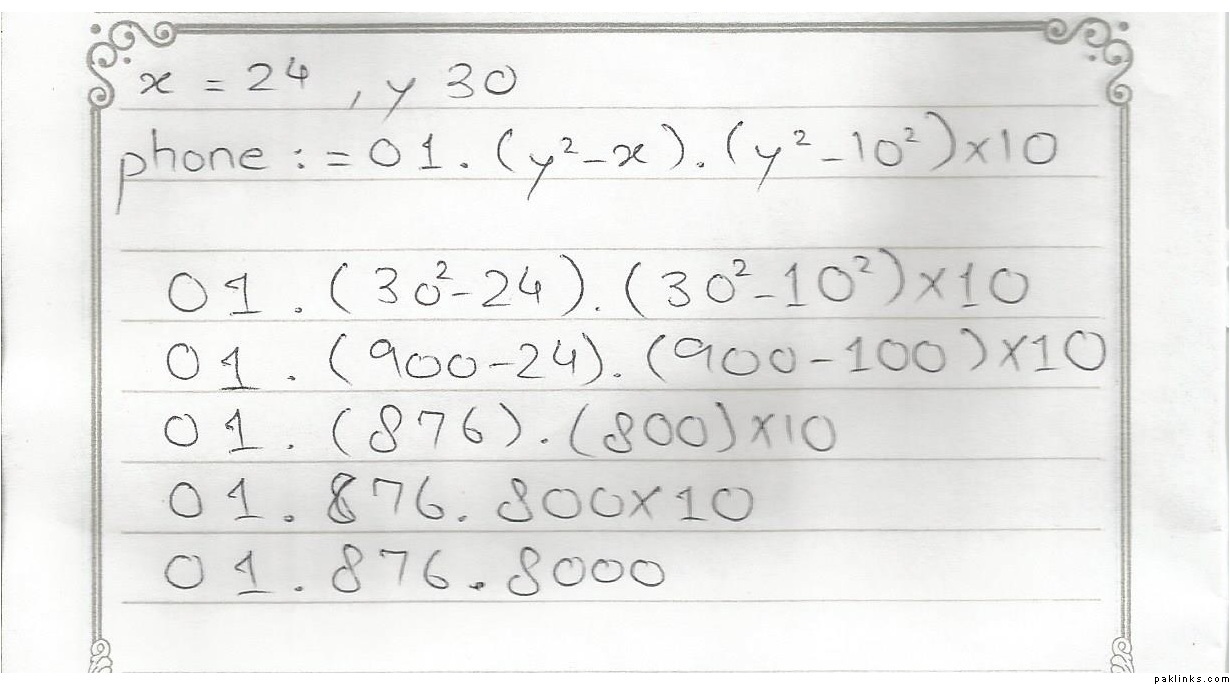 x = 24 , y 30
phone := 01.(y²-x).(y²-10²)x10
01.(30²-24).(30²-10²)x10
01.(900-24).(900-100)x10
01.(876).(800)x10
01.876.800x10
01.876.8000
paklinks.com